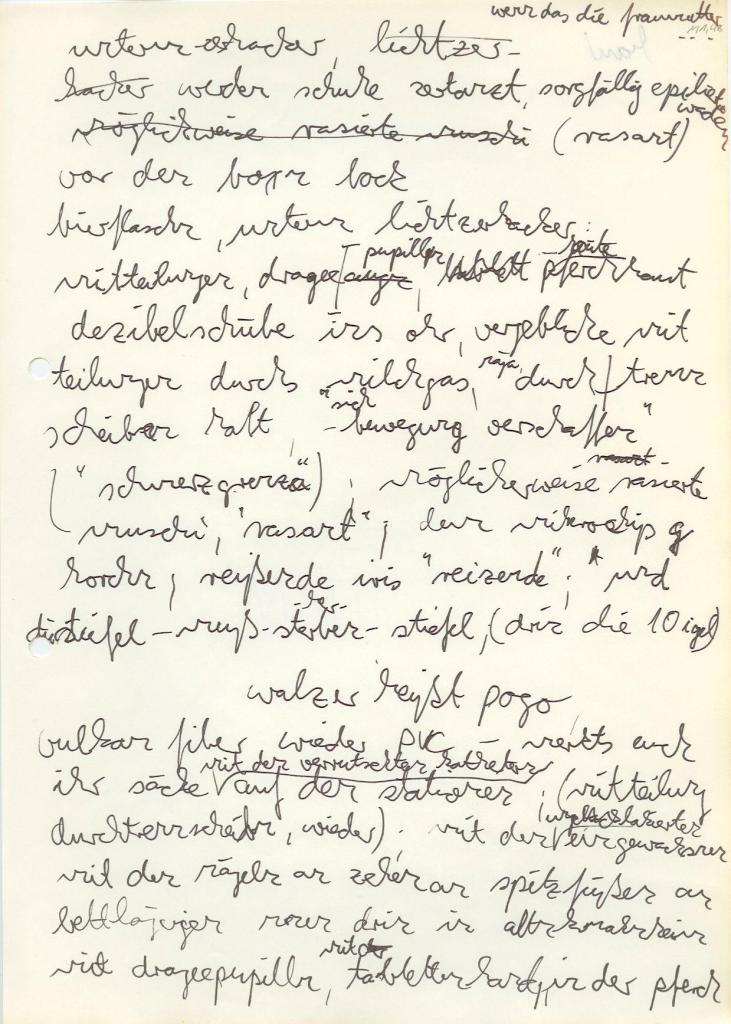 wenn das die fraumutter
unterm zerhacker, lichtzer-
hacker wieder schuhe zertanzt, sorgfällig epilierte waden
möglicherweise rasierte muschi (rasant)
vor den boxn bock
bierflaschn, unterm lichtzerhacker:
mitteilungen, drageepupilln, pferdehaut
dezibelschübe ins ohr, vergebliche mit
teilungen durchs milchgas, durch/trenn
scheiben haft, "sich bewegung verschaffen"
("schmerzgrenze"); möglicherweise rasierte
muschi, "rasant"; dem mikrochip g
horchn; reißende iris "reizende"; "und
stiefel - muß - sterben - stiefel, (drin die 10 igel)
walzer heißt pogo
vulkan fiber wieder PVC - merkts euch
ihr säcke mit den verrutschten kathetern auf den stationen; (mitteilung
durchtrennscheibn, wieder); mit den eingewachsnen
mit den nägeln an zehen an spitzfüßen an
bettlägrigen nonnen drin in altnkrankenheim
mit drageepupilln, tablettenhand, in der pferch